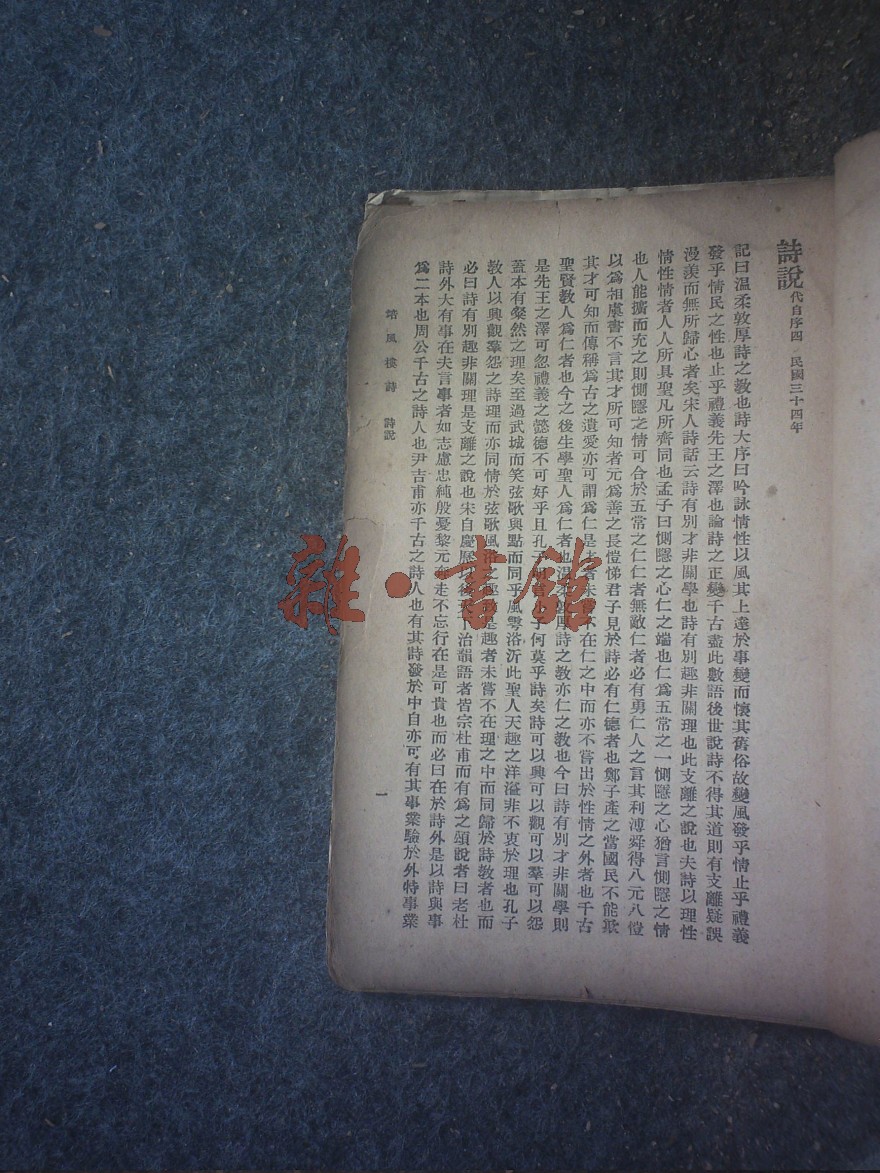 詩說 代自序四 民國三十四年
記曰温柔敦厚詩之教也詩大序曰吟詠情性以風其上達於事變而懷其舊俗故變風發乎情止乎禮義
發乎情民之性也止乎禮義先王之澤也論詩之正變千古盡此數語後世說詩不得其道則有支離疑誤
漫羨而無所歸心者矣宋人詩話云詩有別才非關學也詩有別趣非關理也此支離之說也夫詩以理性
情性情者人人所具聖凡所齊同也孟子曰惻隱之心仁之端也仁爲五常之一惻隱之心猶言惻隱之情
也人能擴而充之則惻隱之情可合於五常之仁仁者無敵仁者必有勇仁人之言其利溥舜得八元八愷
以爲相虞書不言其才所可知者元爲善之長愷悌君子見於詩必有仁德者也鄭子產之當國民不能欺
其才可知而傳稱爲古之遺愛亦可謂爲仁是才者未嘗不在仁之中而亦不嘗出於性情之外者也千古
聖賢教人爲仁者也今之後生學聖人爲仁者也温柔敦厚詩之教亦仁之教也今曰詩有別才非關學則
是先王之澤可忽禮義之懿德不可好乎且孔子何莫乎詩矣詩可以興可以觀可以羣可以怨
蓋本有燦然之理矣至過武城而笑弦歌與點而同乎風雩浴沂此聖人天趣之洋溢非不衷於理也孔子
教人以興觀羣怨之詩理而亦同情於弦歌風浴之趣是趣者未嘗不在理之中而同歸於詩教者也而
必曰詩有別趣非關理是支離之說也宋自慶歷以後天下治韻語者皆宗杜甫而有爲之頌說者曰老杜
詩外大有事在夫言事者如志慮忠純殷憂黎元奔走不忘行在是可貴也而必曰在於詩外是以詩與事
爲二本也周公千古之詩人也尹吉甫亦千古之詩人也有其詩發於中自亦可有其事業驗於外特事業
風樓詩 詩說
一
雜·書館